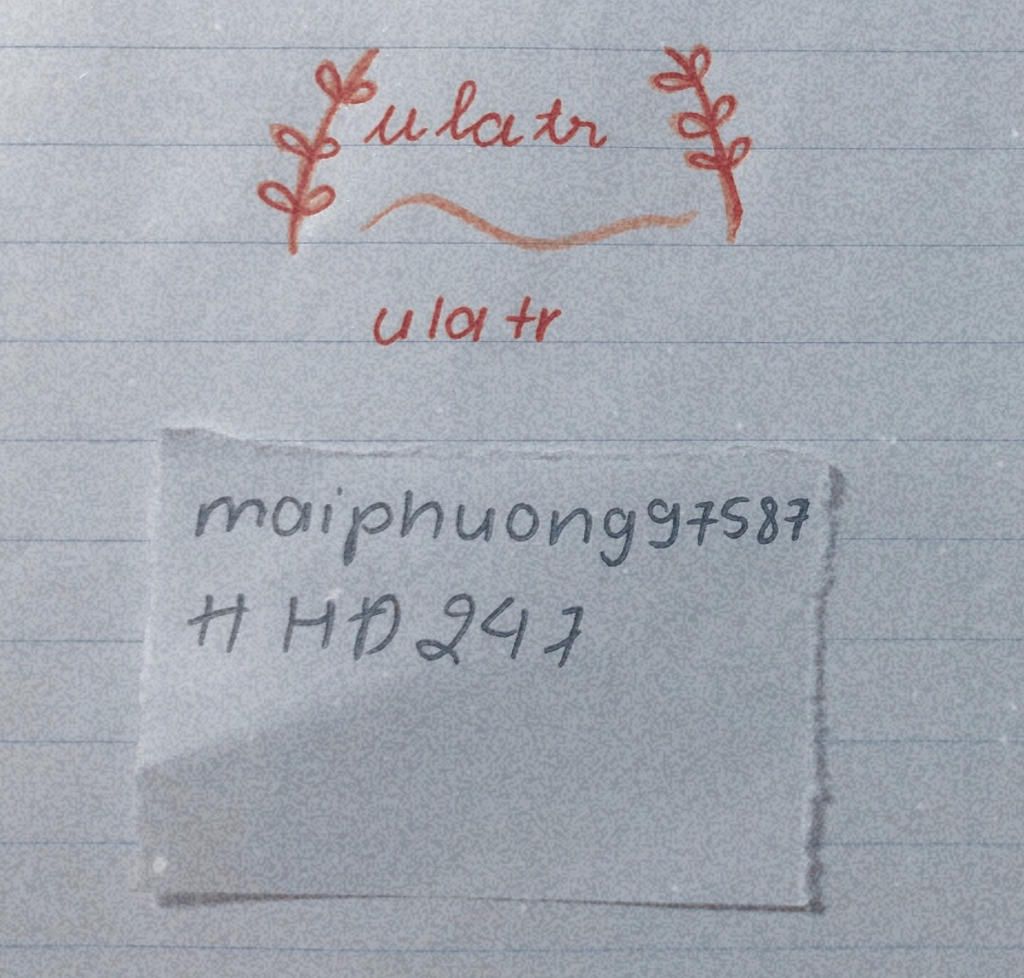 ulatr
ulatr
maiphuong97587
HHĐ247